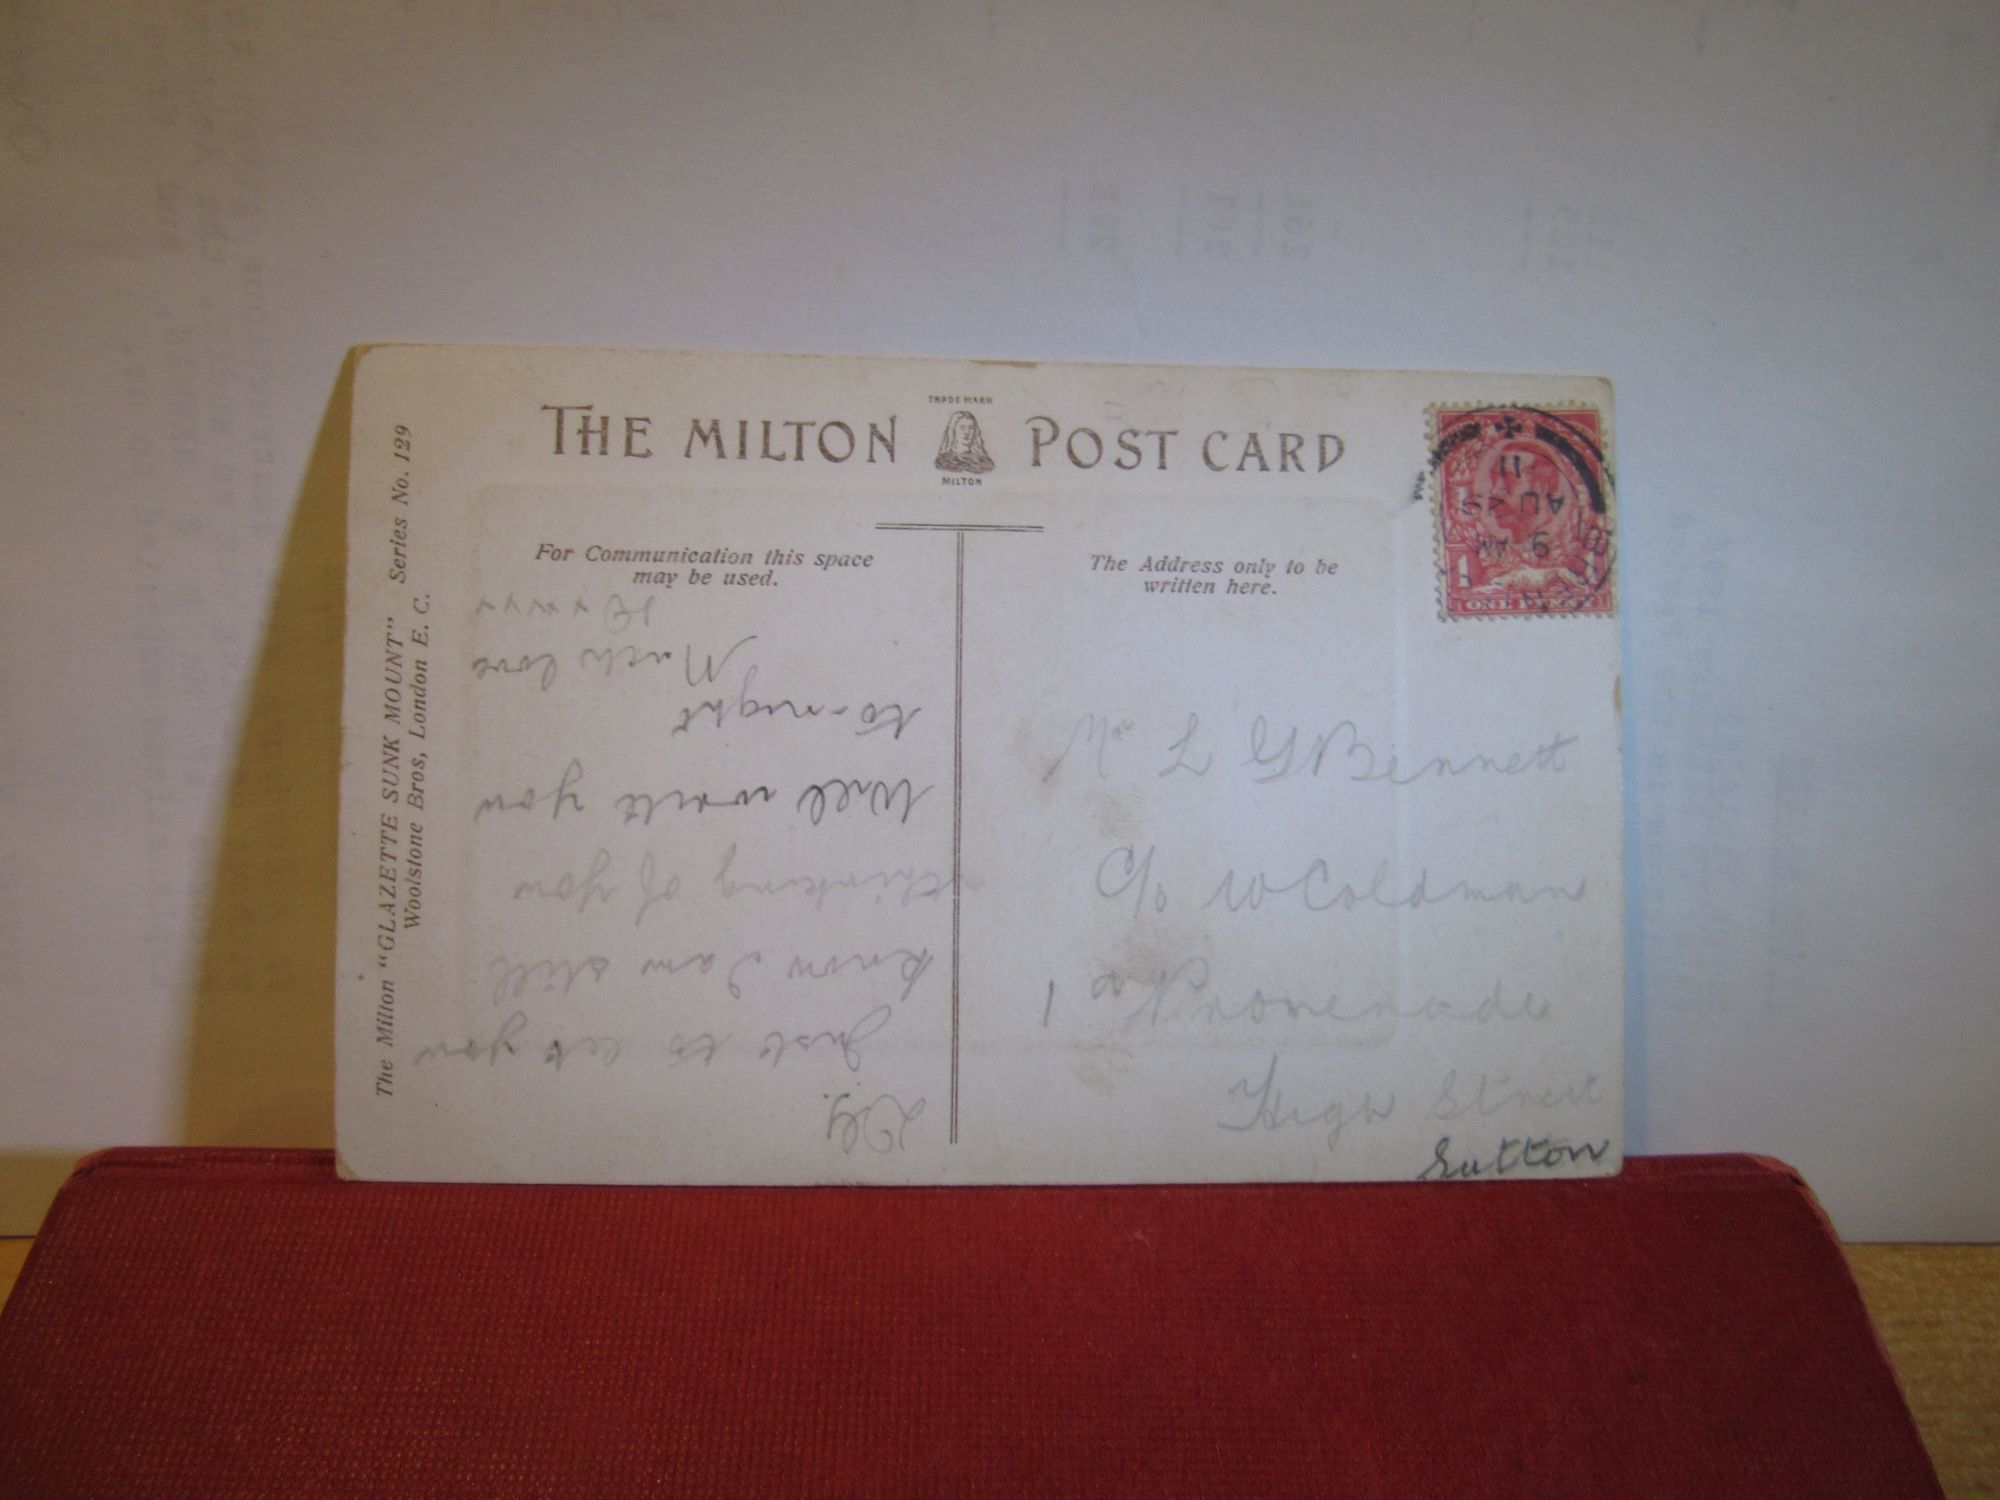 THE MILTON POST CARD
TRADE MARK
MILTON
The Milton "GLAZETTE SUNK MOUNT" Series No. 129
Woolstone Bros, London E. C.
For Communication this space
may be used.
The Address only to be
written here.
Just to let you
know I am still
thinking of you
Will write you
to-night
Much love
xxxxx
Mr L G Bennett
C/o W Coldman
1 Promenade
High Street
Sutton
ONE PENNY
9 AM
AU 29
11